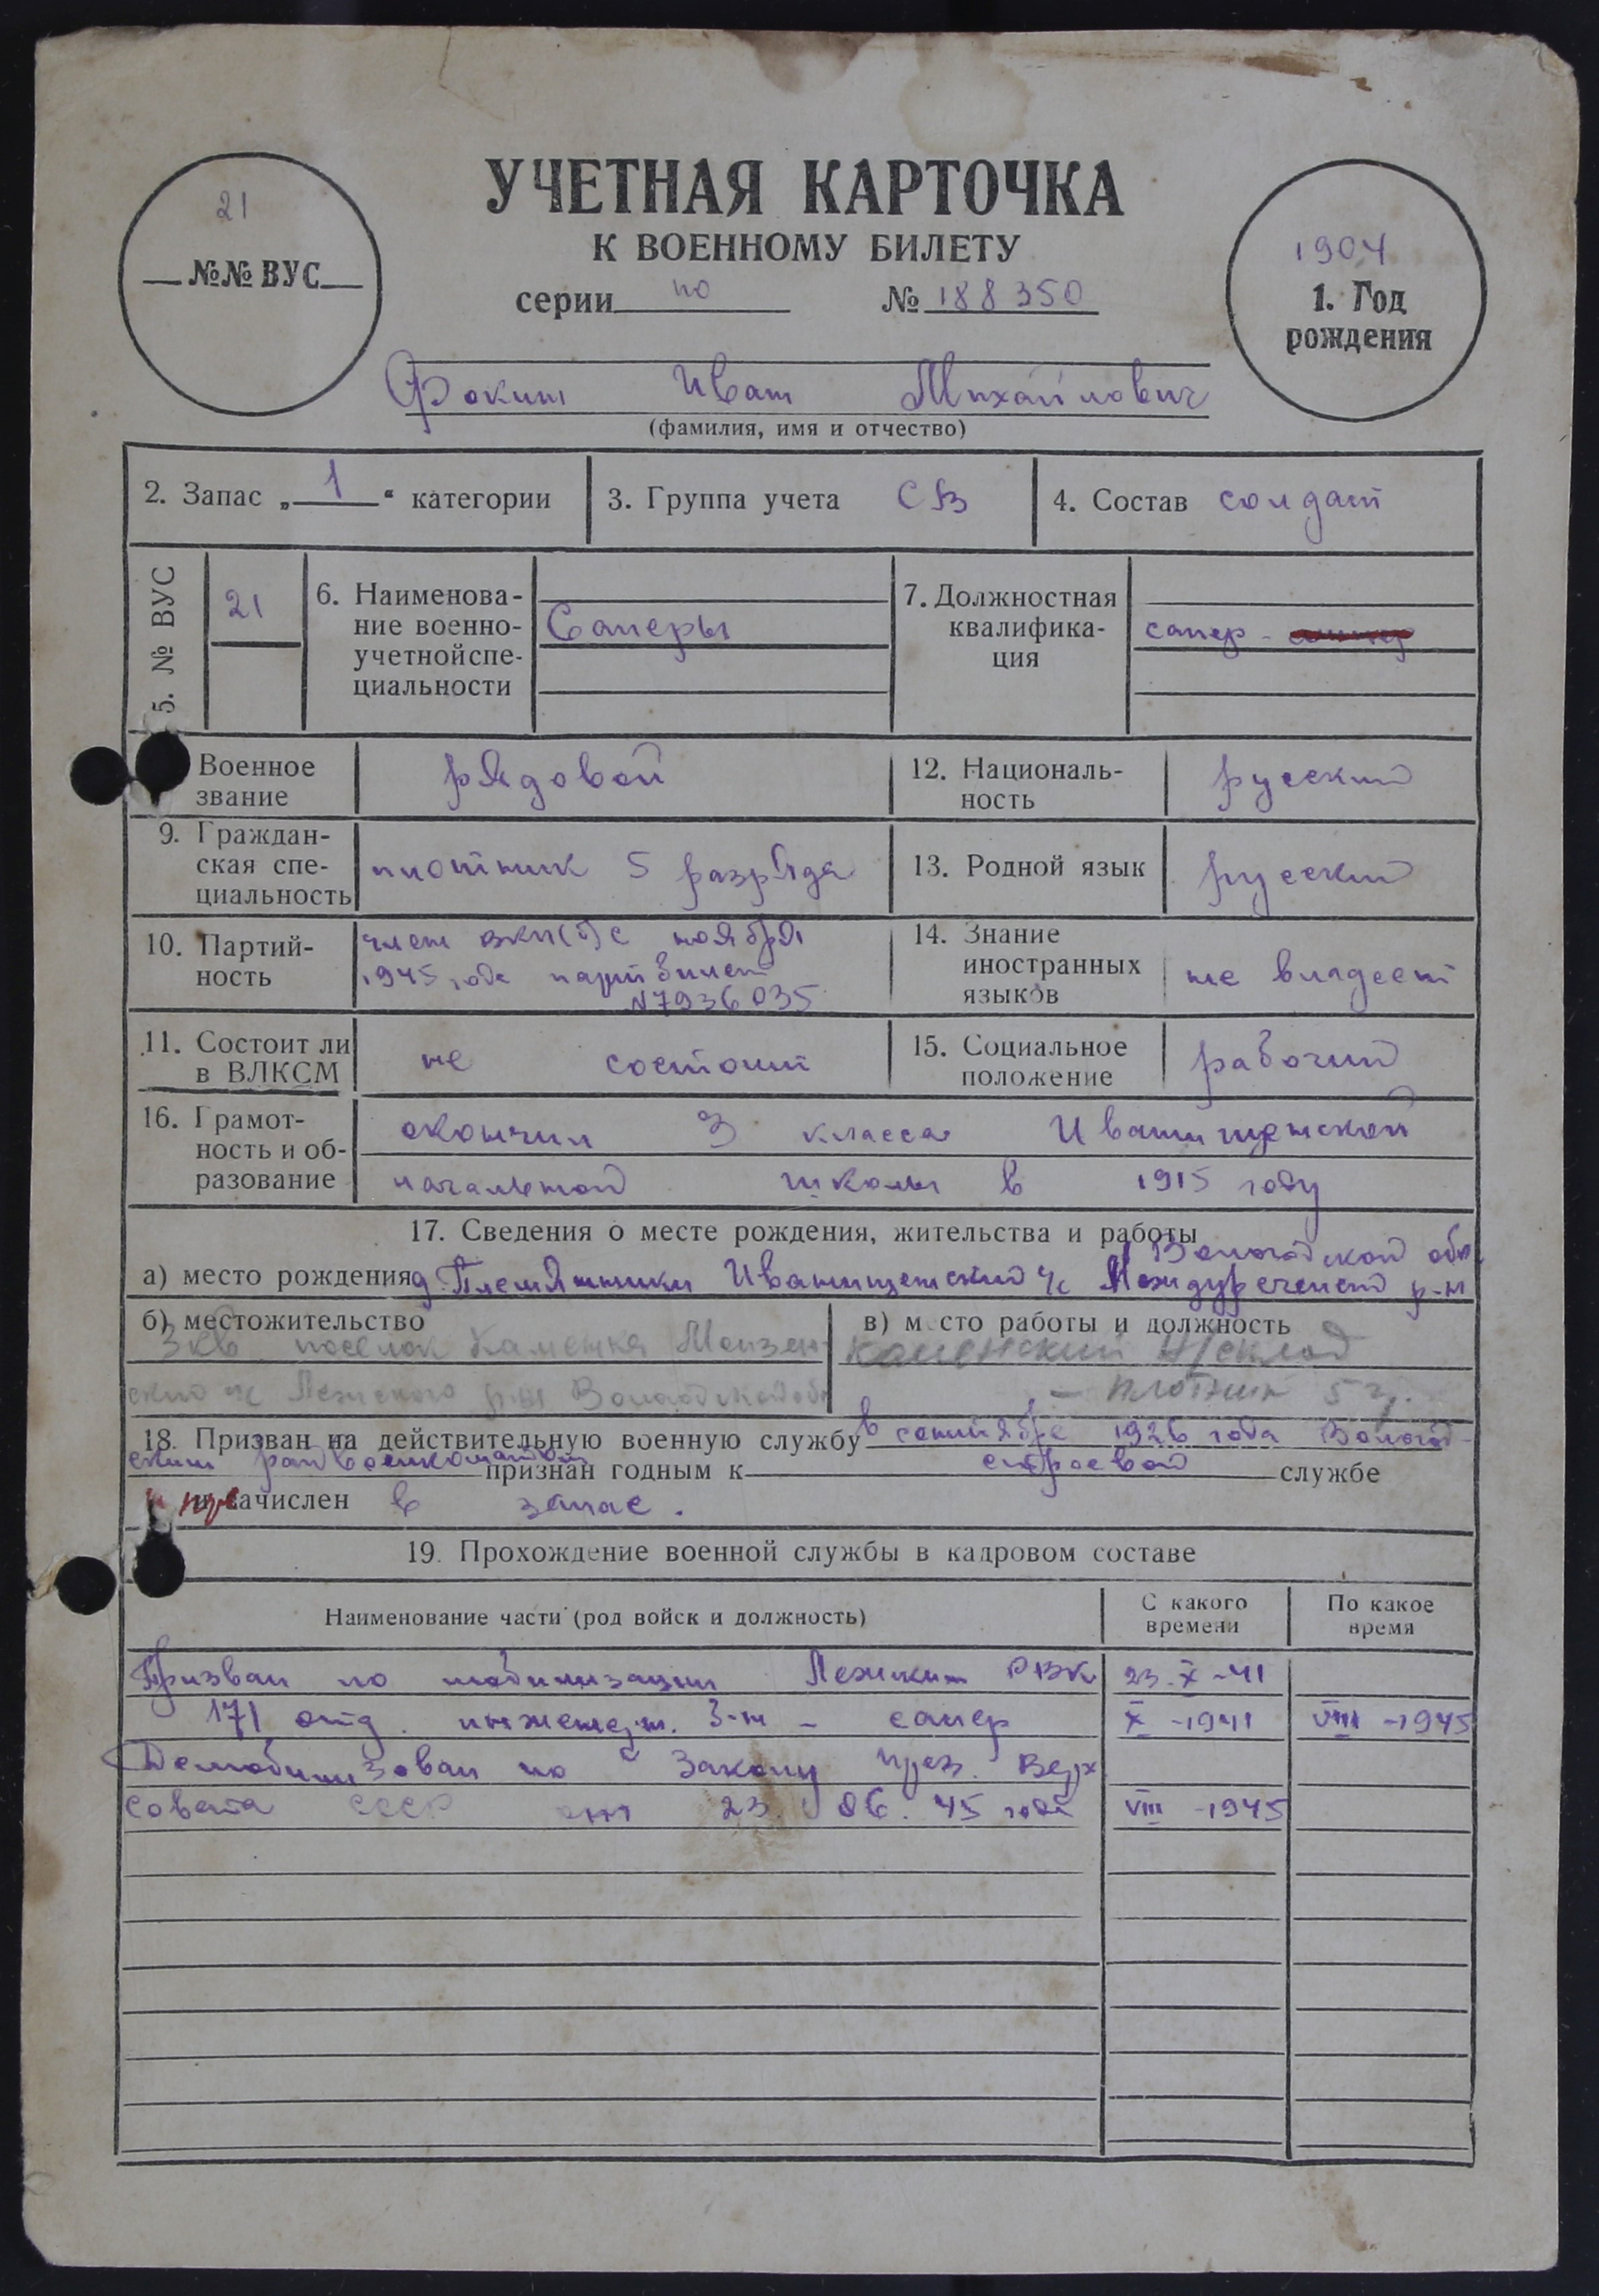 УЧЕТНАЯ КАРТОЧКА
К ВОЕННОМУ БИЛЕТУ
серии по № 188350
21
№№ ВУС
1904
1. Год
рождения
Фокин Иван Михайлович
(фамилия, имя и отчество)
2. Запас „ 1 “ категории
3. Группа учета СВ
4. Состав солдат
5. № ВУС
21
6. Наименова-
ние военно-
учетной спе-
циальности
Саперы
7. Должностная
квалифика-
ция
сапер -
Военное
звание
рядовой
12. Националь-
ность
русский
9. Граждан-
ская спе-
циальность
плотник 5 разряда
13. Родной язык
русский
10. Партий-
ность
член ВКП(б) с ноября
1945 года парт билет
№7936035
14. Знание
иностранных
языков
не владеет
11. Состоит ли
в ВЛКСМ
не состоит
15. Социальное
положение
рабочий
16. Грамот-
ность и об-
разование
окончил 3 класса
начальной школы в 1915 году
17. Сведения о месте рождения, жительства и работы
Вологодской обл.
а) место рождения д. Племянники с/с Междуреченск р-н
б) местожительство
3 кв поселок Каменка
ский с/с Лежского р-на Вологодской об
в) м сто работы и должность
Каменский
- плотник 5
18. Призван на действительную военную службу в сентябре 1926 года Вологод-
ским райвоенкоматом признан годным к строевой службе
и зачислен в запас.
19. Прохождение военной службы в кадровом составе
Наименование части (род войск и должность)
С какого
времени
По какое
время
Призван по мобилизации Лежским РВК 23.X-41
171 отд. инженерн. б-н - сапер X-1941 VIII-1945
Демобилизован по Закону През. Верх
Совета СССР от 23.06.45 года VIII-1945